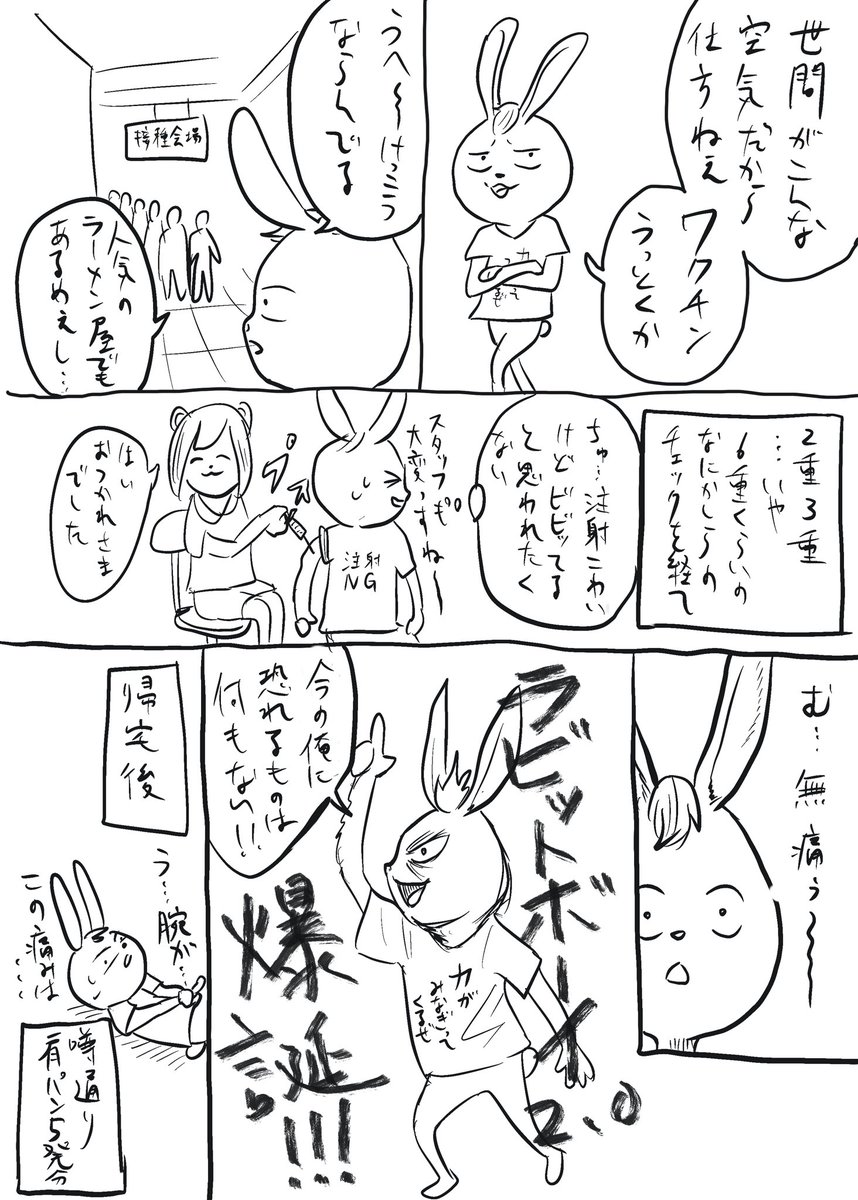 世間がこんな
空気だから
仕方ねえ
ワクチン
うっとくか
うへ〜けっこう
ならんでる
接種会場
人気の
ラーメン屋でも
あるめえし…
2重3重
…いや
6重くらいの
なにかしらの
チェックを経て
ちゅ…注射こわい
けどビビッてる
と思われたく
ない
スタッフも
大変っすね〜
注射
NG
プスッ
はい
おつかれさま
でした
む…無痛ぅ〜〜
ラビットボーイ2.0
爆誕!!!
今の俺に
恐れるものは
何もない!!
力が
みなぎって
くるぜ
帰宅後
う…腕が…
この痛みは……
噂通り
肩パン5発分